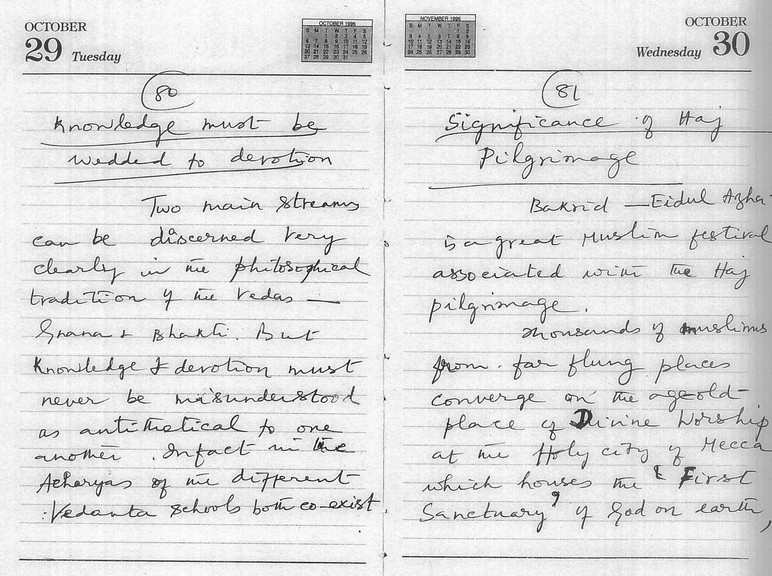 OCTOBER
29 Tuesday
OCTOBER 1996
80
Knowledge must be
wedded to devotion
Two main streams
can be discerned very
clearly in the philosophical
tradition of the Vedas —
Gnana & Bhakti. But
Knowledge & devotion must
never be misunderstood
as antithetical to one
another. Infact in the
Acharyas of the different
Vedanta schools both co-exist
NOVEMBER 1996
OCTOBER
Wednesday 30
81
Significance of Haj
Pilgrimage
Bakrid — Eidul Azha-
is a great Muslim festival
associated with the Haj
pilgrimage.
Thousands of muslims
from far flung places
converge on the ageold
place of Divine Worship
at the Holy city of Mecca
which houses the 'First
Sanctuary' of God on earth,